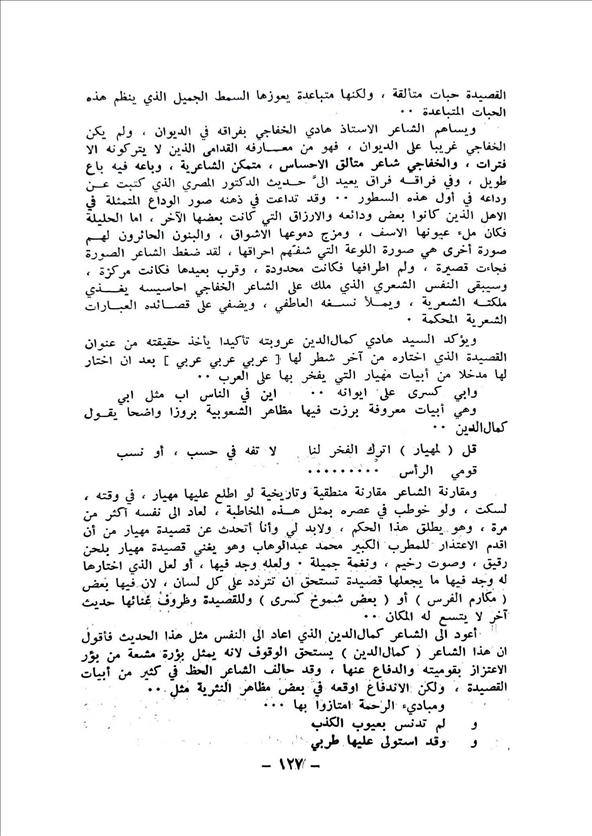 القصيدة حبات متألقة ، ولكنها متباعدة يعوزها السمط الجميل الذي ينظم هذه
الحبات المتباعدة ٠٠
ويساهم الشاعر الاستاذ هادي الخفاجي بفراقه في الديوان ، ولم يكن
الخفاجي غريبا على الديوان ، فهو من معـــارفه القدامى الذين لا يتركونه الا
فترات ، والخفاجي شاعر متألق الاحساس ، متمكن الشاعرية ، وباعه فيه باع
طويل ، وفي فراقـــه فراق يعيد اليَّ حديث الدكتور المصري الذي كتبت عـن
وداعه في أول هذه السطور ٠٠ وقد تداعت في ذهنه صور الوداع المتمثلة في
الاهل الذين كانوا بعض ودائعه والارزاق التي كانت بعضها الآخر ، اما الحليلة
فكان ملء عيونها الاسف ، ومزج دموعها الاشواق ، والبنون الحائرون لهـم
صورة أخرى هي صورة اللوعة التي شفتهم احراقها ، لقد ضغط الشاعر الصورة
فجاءت قصيرة ، ولم اطرافها فكانت محدودة ، وقرب بعيدها فكانت مركزة ،
وسيبقى النفس الشعري الذي ملك على الشاعر الخفاجي احاسيسه يغـــذي
ملكتـه الشعرية ، ويمـلأ نسـغه العاطفي ، ويضفي على قصـائده العبارات
الشعرية المحكمة ٠
ويؤكد السيد هادي كمال‌الدين عروبته تاكيدا يأخذ حقيقته من عنوان
القصيدة الذي اختاره من آخر شطر لها [ عربي عربي عربي ] بعد ان اختار
لها مدخلا من أبيات مهيار التي يفخر بها على العرب ٠٠
وابي كسرى على ايوانه ٠٠ اين في الناس اب مثل ابي
وهي أبيات معروفة برزت فيها مظاهر الشعوبية بروزا واضحا يقـول
كمال‌الدين ٠٠
قل ( لمهيار ) اترك الفخر لنا لا تفه في حسب ، أو نسب
قومي الرأس ٠٠٠٠٠٠٠٠٠
ومقارنة الشاعر مقارنة منطقية وتاريخية لو اطلع عليها مهيار ، في وقته ،
لسكت ، ولو خوطب في عصره بمثل هـذه المخاطبة ، لعاد الى نفسه اكثر من
مرة ، وهو يطلق هذا الحكم ، ولابد لي وأنا أتحدث عن قصيدة مهيار من أن
اقدم الاعتذار للمطرب الكبير محمد عبدالوهاب وهو يغني قصيدة مهيار بلحن
رقيق ، وصوت رخيم ، ونغمة جميلة ٠ ولعله وجد فيها ، أو لعل الذي اختارها
له وجد فيها ما يجعلها قصيدة تستحق ان تتردد على كل لسان ، لان فيها بعض
( مكارم الفرس ) أو ( بعض شموخ كسرى ) وللقصيدة وظروف غنائها حديث
آخر لا يتسع له المكان ٠٠
أعود الى الشاعر كمال‌الدين الذي اعاد الى النفس مثل هذا الحديث فأقول
ان هذا الشاعر ( كمال‌الدين ) يستحق الوقوف لانه يمثل بؤرة مشعة من بؤر
الاعتزاز بقوميته والدفاع عنها ، وقد حالف الشاعر الحظ في كثير من أبيات
القصيدة ، ولكن الاندفاع اوقعه في بعض مظاهر النثرية مثل ٠٠
ومباديء الرحمة امتازوا بها ٠٠٠
و لم تدنس بعيوب الكذب
و وقد استولى عليها طربي
– ١٢٧ –